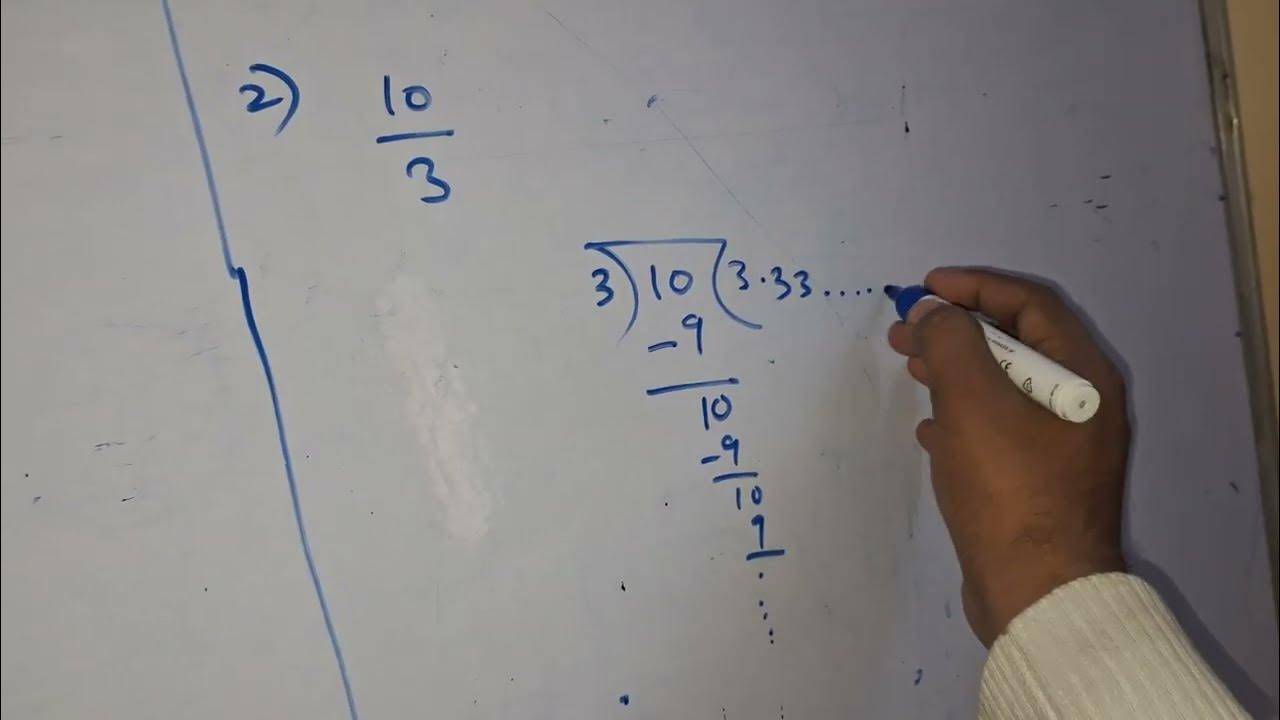 2) 10
3
3)10(3.33.....
-9
10
-9
10
9
.
.
.